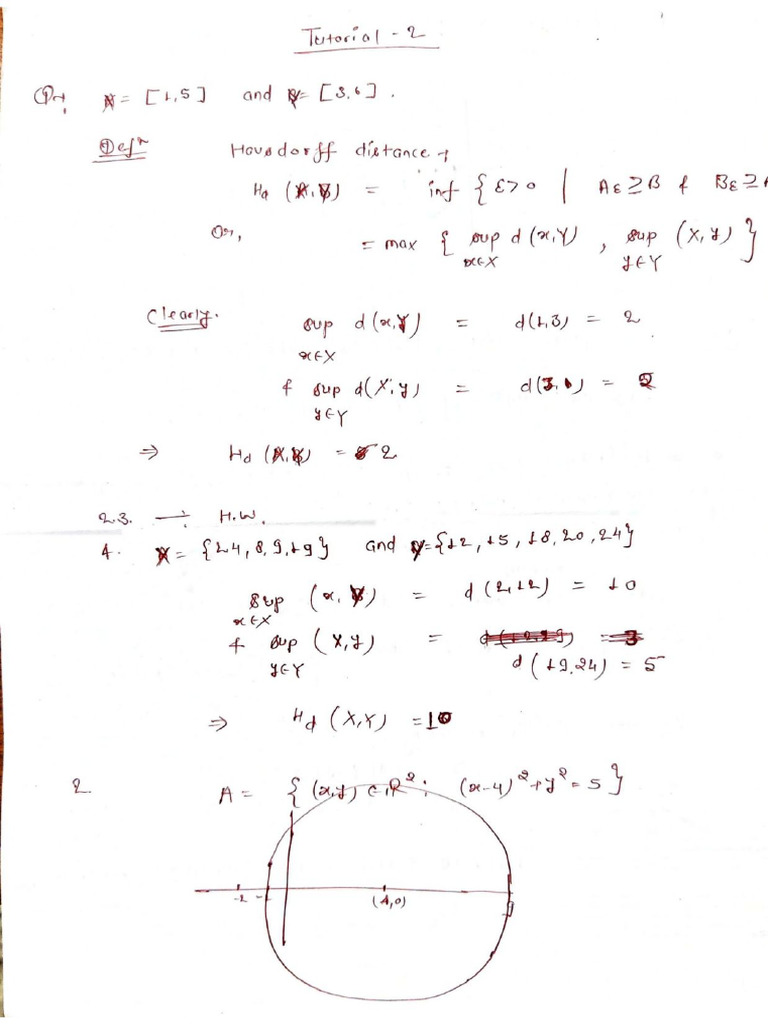 Tutorial - 2
Q1. X = [1,5] and Y = [3,6].
① Defn Hausdorff distance →
Hd (X,Y) = inf { ε>0 | Aε ⊇ B & Bε ⊇ A
Or, = max { sup d(x,Y) , sup (X,y) }
x∈X y∈Y
Clearly. sup d(x,Y) = d(1,3) = 2
x∈X
& sup d(X,y) = d( ) = 2
y∈Y
⇒ Hd (X,Y) = 2
2.3. → H.W.
4. X = {2 4, 8, 9, 19} and Y = {12, 15, 18, 20, 24}
Sup (x, Y) = d(2,12) = 10
x∈X
& sup (X,y) =
y∈Y d(19,24) = 5
⇒ Hd (X,Y) = 10
2 A = { (x,y) ∈ R²: (x-4)²+y² = 5 }
-2 (4,0) 9